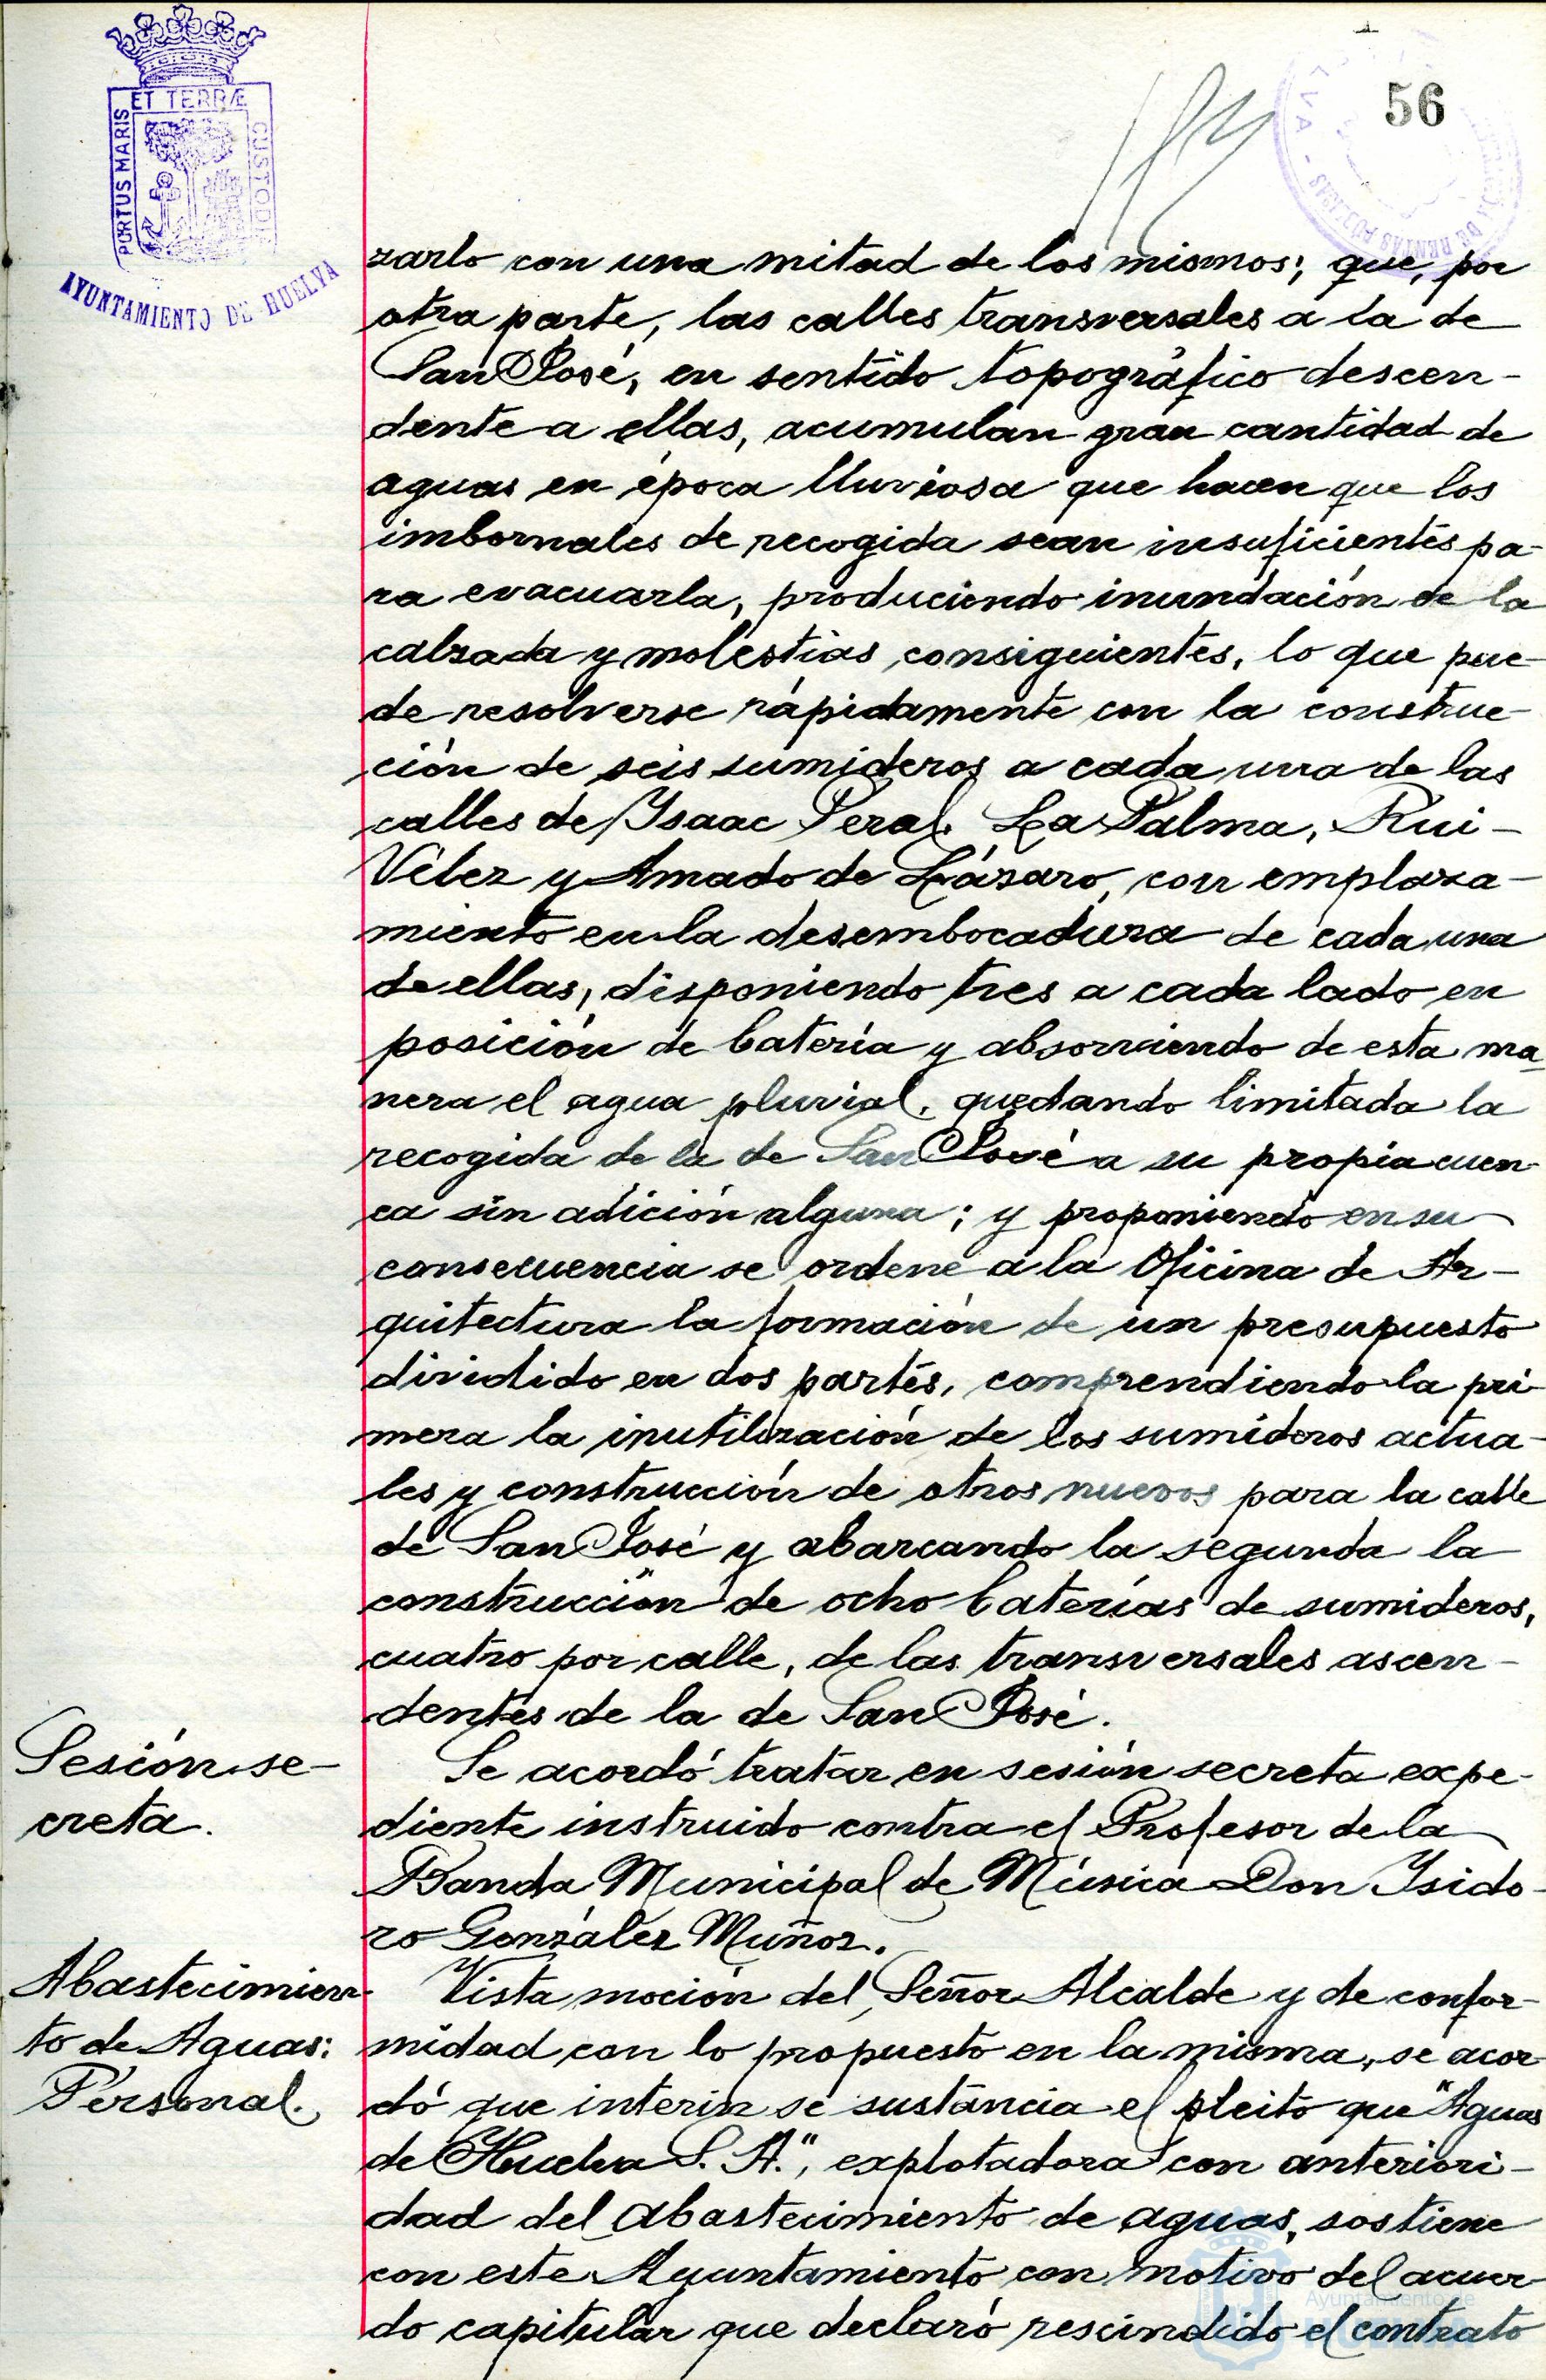 ET TERRÆ
PORTUS MARIS
CUSTODI
AYUNTAMIENTO DE HUELVA
56
zarlo con una mitad de los mismos; que, por
otra parte, las calles transversales a la de
San José, en sentido topográfico descen-
dente a ellas, acumulan gran cantidad de
aguas en época lluviosa que hacen que los
imbornales de recogida sean insuficientes pa-
ra evacuarla, produciendo inundación de la
calzada y molestias consiguientes, lo que pue-
de resolverse rápidamente con la construc-
ción de seis sumideros a cada una de las
calles de Ysaac Peral, La Palma, Rui-
Vélez y Amado de Lázaro, con emplaza-
miento en la desembocadura de cada una
de ellas, disponiendo tres a cada lado en
posición de batería y absorviendo de esta ma-
nera el agua pluvial, quedando limitada la
recogida de la de San José a su propia cuen-
ca sin adición alguna; y proponiendo en su
consecuencia se ordene a la Oficina de Ar-
quitectura la formación de un presupuesto
dividido en dos partes, comprendiendo la pri-
mera la inutilización de los sumideros actua-
les y construcción de otros nuevos para la calle
de San José y abarcando la segunda la
construcción de ocho baterías de sumideros,
cuatro por calle, de las transversales ascen-
dentes de la de San José.
Sesión se-
creta.
Se acordó tratar en sesión secreta expe-
diente instruido contra el Profesor de la
Banda Municipal de Música Don Ysido-
ro González Muñoz.
Abastecimien-
to de Aguas:
Personal.
Vista moción del Señor Alcalde y de confor-
midad con lo propuesto en la misma, se acor-
dó que interin se sustancia el pleito que "Aguas
de Huelva S. A.", explotadora con anteriori-
dad del abastecimiento de aguas, sostiene
con este Ayuntamiento con motivo del acuer-
do capitular que declaró rescindido el contrato
Ayuntamiento de
HUELVA